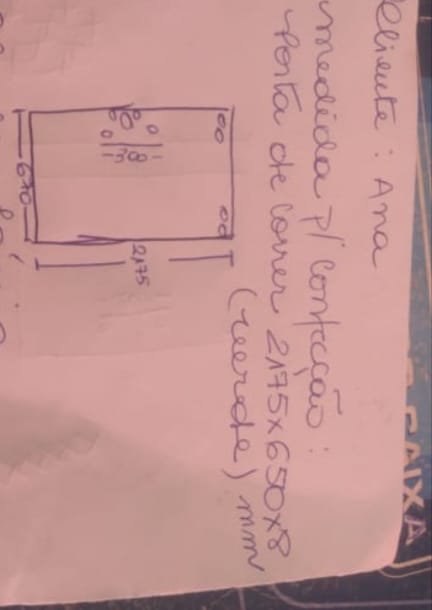 Cliente: Ana
medida p/ confecção:
Porta de correr 2175x650x8
(verde) mm
300
2175
CAIXA